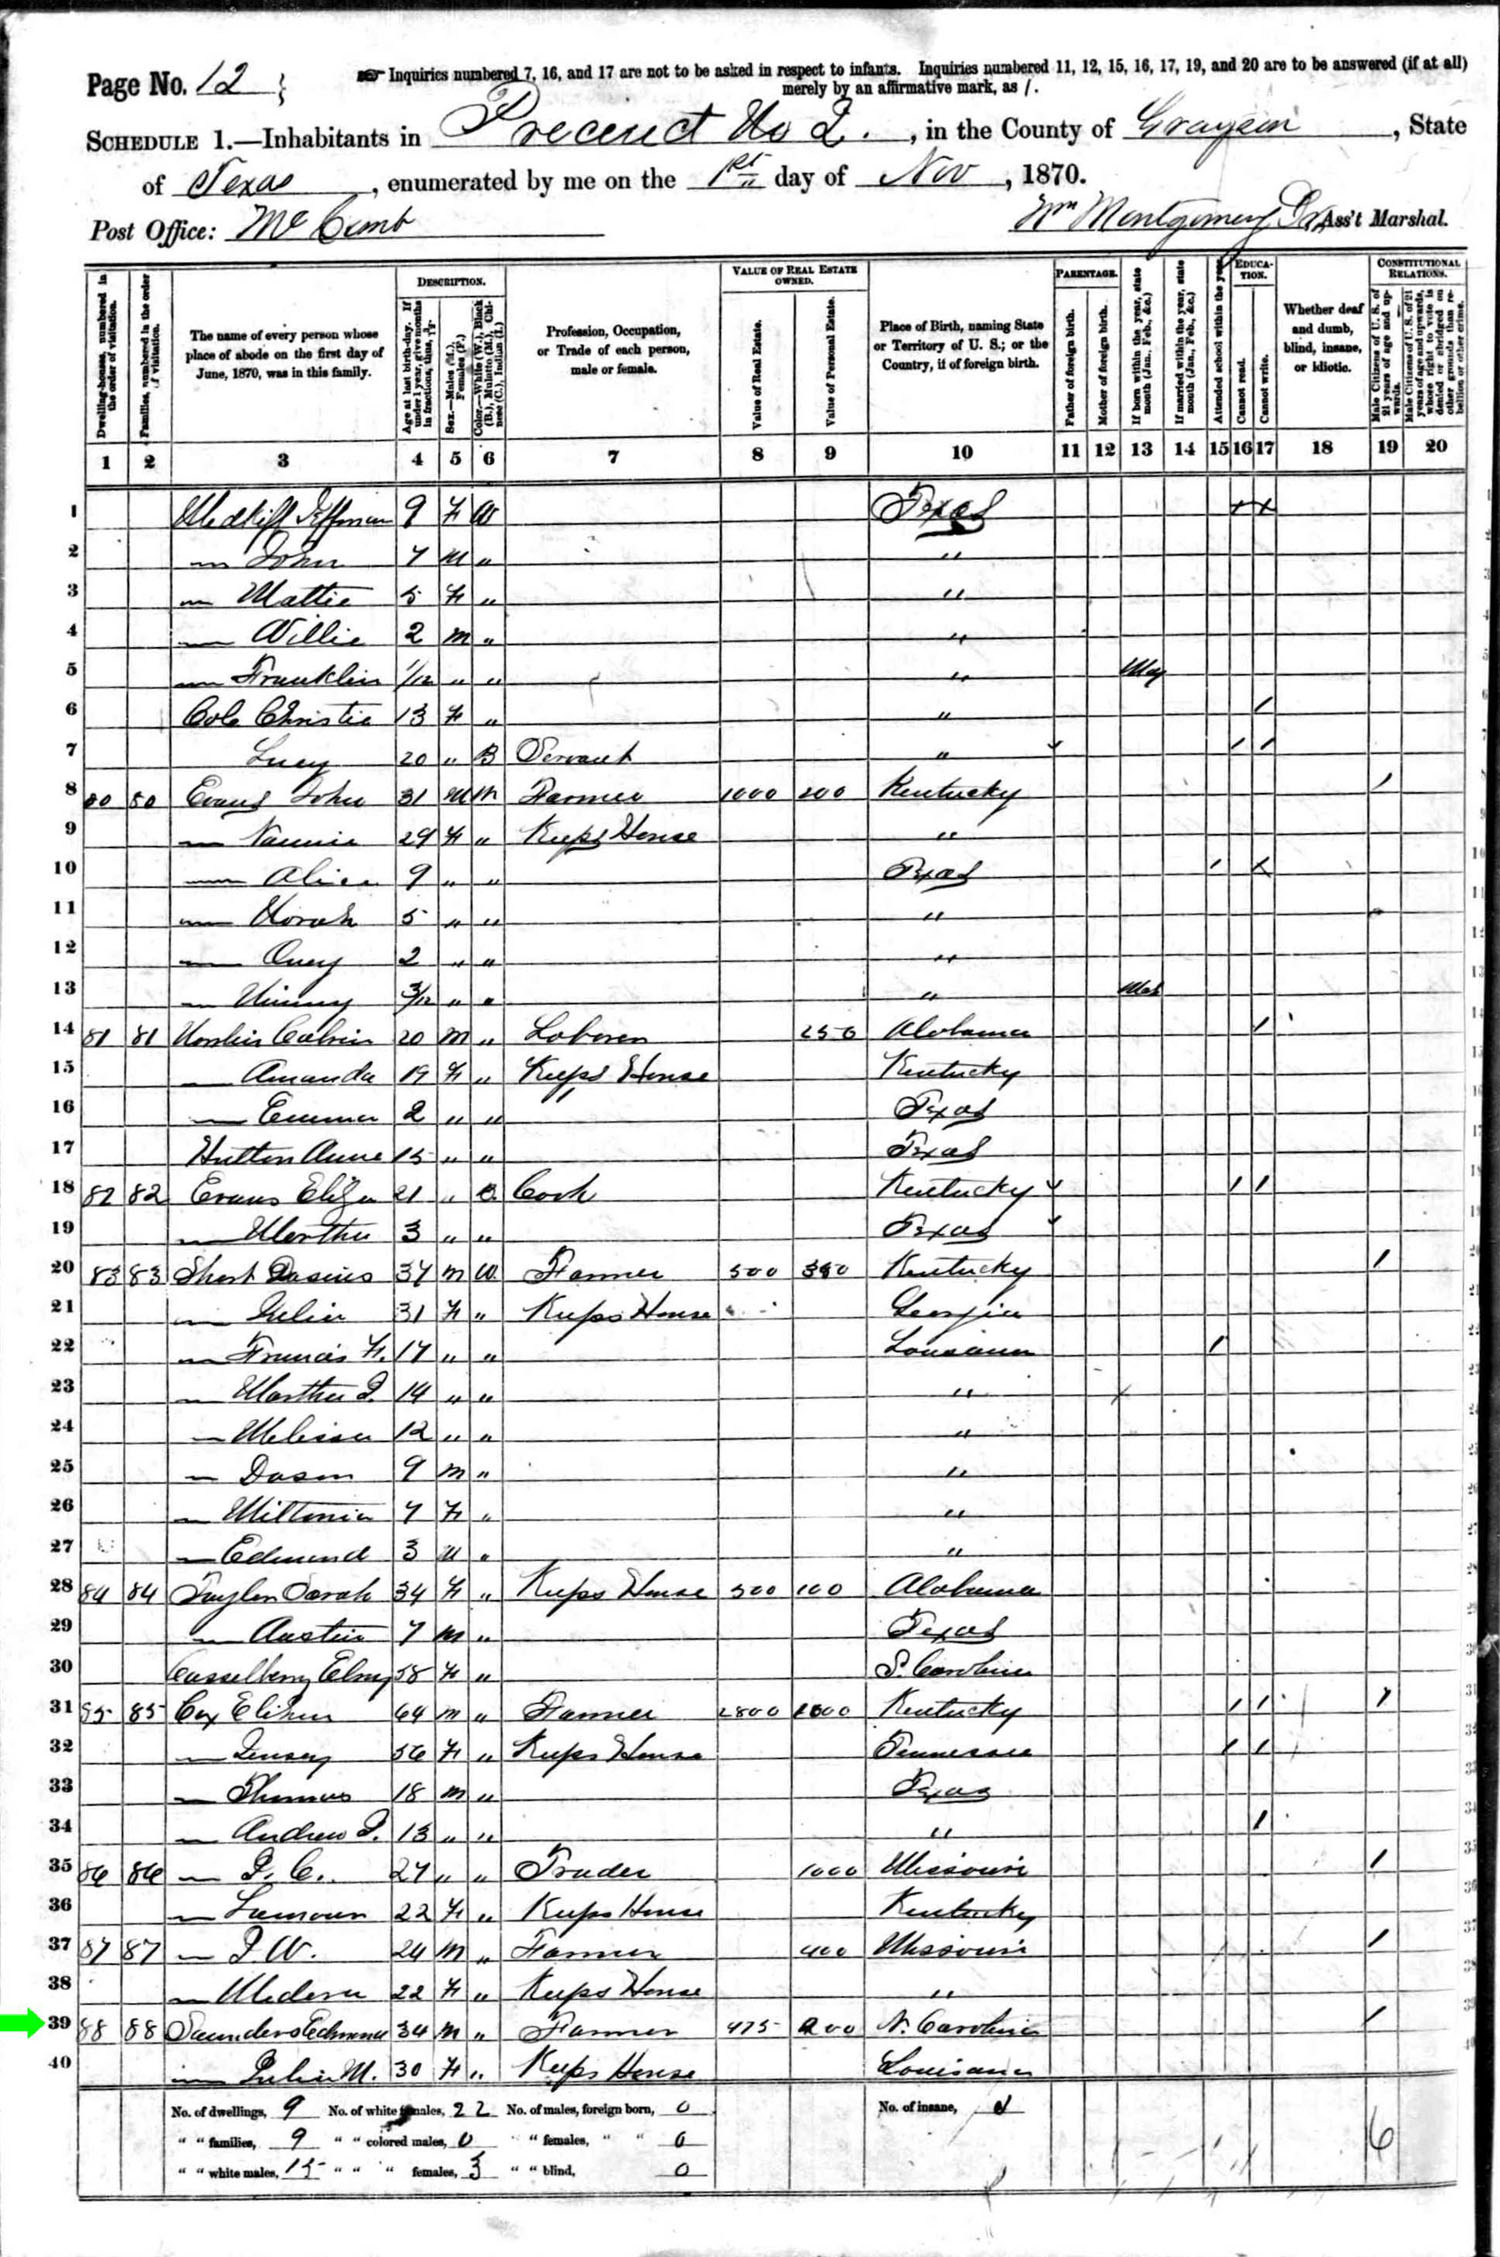 Page No. 12
Inquiries numbered 7, 16, and 17 are not to be asked in respect to infants. Inquiries numbered 11, 12, 15, 16, 17, 19, and 20 are to be answered (if at all)
merely by an affirmative mark, as /.
SCHEDULE 1.—Inhabitants in Precinct No 2., in the County of Grayson, State
of Texas, enumerated by me on the 1st day of Nov, 1870.
Post Office: McComb
Wm Montgomery, Ass't Marshal.
Dwelling-houses, numbered in the order of visitation.
Families, numbered in the order of visitation.
The name of every person whose place of abode on the first day of June, 1870, was in this family.
DESCRIPTION.
Age at last birth-day. If under 1 year, give months in fractions, thus, 3/12
Sex.—Males (M.), Females (F.)
Color.—White (W.), Black (B.), Mulatto (M.), Chinese (C.), Indian (I.)
Profession, Occupation, or Trade of each person, male or female.
VALUE OF REAL ESTATE OWNED.
Value of Real Estate.
Value of Personal Estate.
Place of Birth, naming State or Territory of U. S.; or the Country, if of foreign birth.
PARENTAGE.
Father of foreign birth.
Mother of foreign birth.
If born within the year, state month (Jan., Feb., &c.)
If married within the year, state month (Jan., Feb., &c.)
Attended school within the year.
EDUCATION.
Cannot read.
Cannot write.
Whether deaf and dumb, blind, insane, or idiotic.
CONSTITUTIONAL RELATIONS.
Male Citizens of U. S. of 21 years of age and upwards.
Male Citizens of U. S. of 21 years of age and upwards, whose right to vote is denied or abridged on other grounds than rebellion or other crime.
1 2 3 4 5 6 7 8 9 10 11 12 13 14 15 16 17 18 19 20
1 9 F W Texas
2 — John 7 M " "
3 — Mattie 5 F " "
4 — Willie 2 M " "
5 — Franklin 1/12 " " " May
6 Cole Christie 13 F " " /
7 Lucy 20 " B Servant " / /
8 80 80 Evans John 31 M W Farmer 1000 200 Kentucky /
9 — Nannie 29 F " Keeps House "
10 — Alice 9 " " Texas /
11 — Norah 5 " " "
12 — 2 " " "
13 — 3/12 " " " Mch
14 81 81 Calvin 20 M " Laborer 250 Alabama /
15 — Amanda 19 F " Keeps House Kentucky
16 — Emma 2 " " Texas
17 Hutton Anne 15 " " Texas
18 82 82 Evans Eliza 21 " Cook Kentucky / /
19 — Martha 3 " " Texas
20 83 83 Short 37 M W. Farmer 500 Kentucky /
21 — Julia 31 F " Keeps House Georgia
22 — Francis F. 17 " " Louisiana /
23 — Martha J. 14 " " "
24 — Melissa 12 " " "
25 — 9 M " "
26 — Miltonia 7 F " "
27 — Edmund 3 M " "
28 84 84 Taylor Sarah 34 F " Keeps House 500 100 Alabama
29 — Austin 7 M " Texas
30 Casselberry 58 F " S. Carolina
31 85 85 Cox Elihu 64 M " Farmer 2800 Kentucky / / /
32 — 56 F " Keeps House Tennessee / /
33 — Thomas 18 M " Texas
34 — Andrew J. 13 " " " /
35 86 86 — J. C. 27 " " Trader 1000 Missouri /
36 — 22 F " Keeps House Kentucky
37 87 87 — J. W. 24 M " Farmer 400 Missouri /
38 — Medora 22 F " Keeps House "
39 88 88 Saunders Edmund 34 M " Farmer 475 200 N. Carolina /
40 — Julia M. 30 F " Keeps House Louisiana
No. of dwellings, 9 No. of white females, 22 No. of males, foreign born, 0 No. of insane,
" " families, 9 " " colored males, 0 " " females, " " 0 6
" " white males, 15 " " " females, 3 " " blind, 0